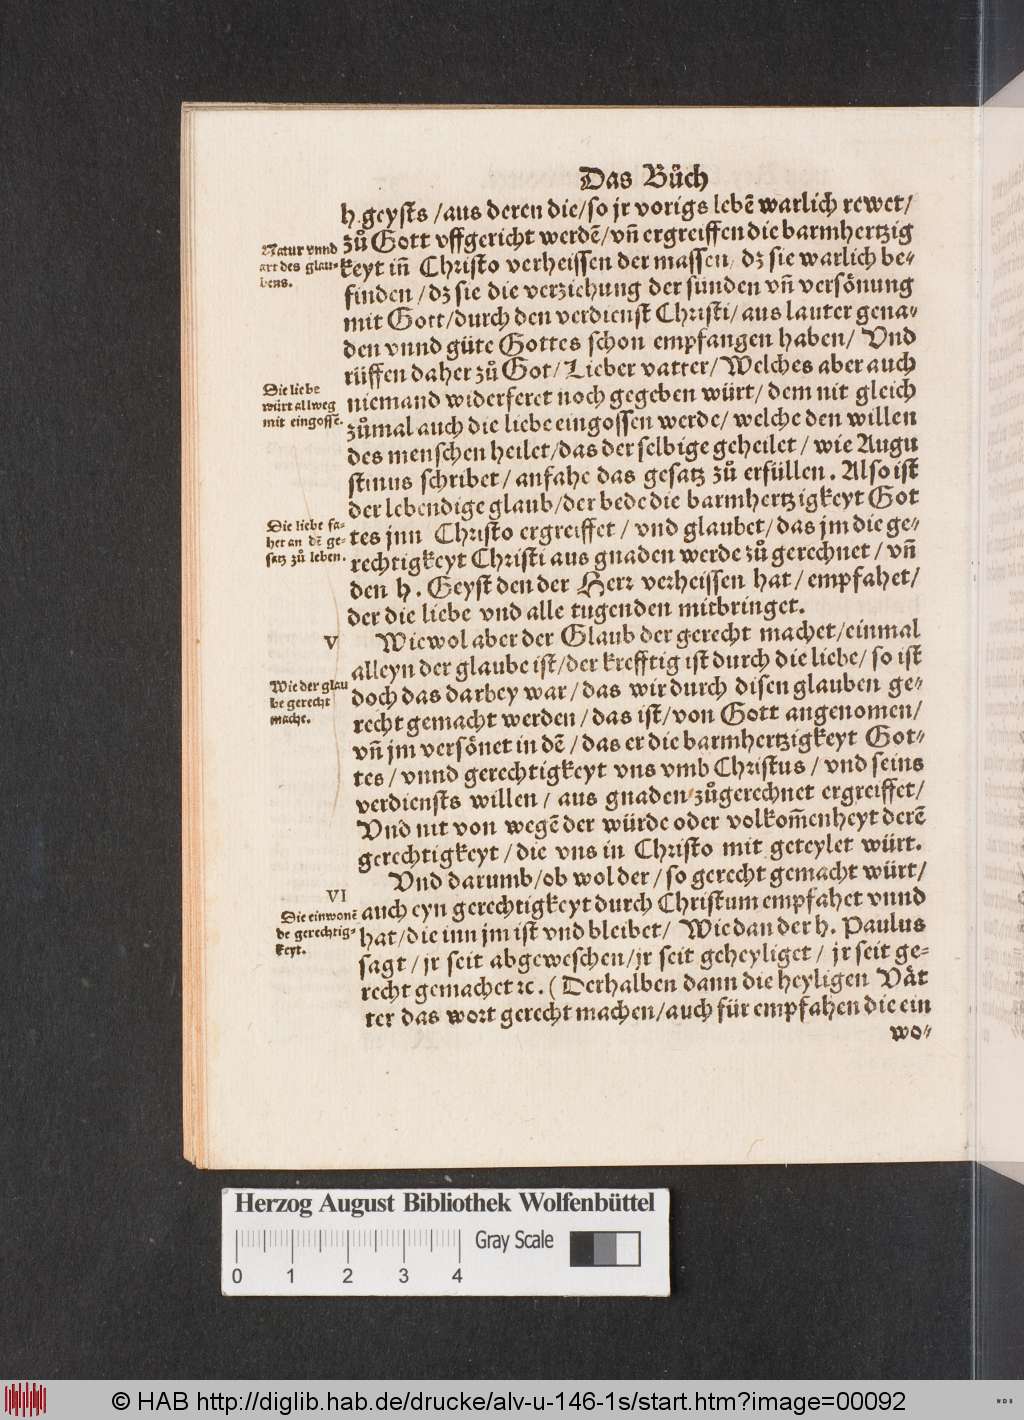 Das Bůch
h. geysts /aus deren die/so jr vorigs lebē warlich rewet/
Natur vnnd
art des glau-
bens.
zů Gott vffgericht werdē/vñ ergreiffen die barmhertzig
keyt iñ Christo verheissen der massen/ dz sie warlich be-
finden/dz sie die verziehung der sünden vñ versönung
mit Gott/durch den verdienst Christi/aus lauter gena-
den vnnd güte Gottes schon empfangen haben/ Vnd
rüffen daher zů Got/Lieber vatter/Welches aber auch
Die liebe
würt allweg
mit eingossē.
niemand widerferet noch gegeben würt/dem nit gleich
zůmal auch die liebe eingossen werde/welche den willen
des menschen heilet/das der selbige geheilet/wie Augu
stinus schribet/anfahe das gesatz zů erfüllen. Also ist
der lebendige glaub/der bede die barmhertzigkeyt Got
Die liebe fa-
het an dē ge-
satz zů leben.
tes jnn Christo ergreiffet/vnd glaubet/das jm die ge-
rechtigkeyt Christi aus gnaden werde zů gerechnet/vñ
den h. Geyst den der Herr verheissen hat/empfahet/
der die liebe vnd alle tugenden mitbringet.
V
Wiewol aber der Glaub der gerecht machet/einmal
alleyn der glaube ist/der krefftig ist durch die liebe/so ist
Wie der glau
be gerecht
mache.
doch das darbey war/das wir durch disen glauben ge-
recht gemacht werden/das ist/von Gott angenomen/
vñ jm versönet in dē/das er die barmhertzigkeyt Got-
tes/vnnd gerechtigkeyt vns vmb Christus/vnd seins
verdiensts willen/aus gnaden zůgerechnet ergreiffet/
Vnd nit von wegē der würde oder volkom̄enheyt derē
gerechtigkeyt/die vns in Christo mit geteylet würt.
VI
Vnd darumb/ob wol der/so gerecht gemacht würt/
Die einwonē
de gerechtig-
keyt.
auch eyn gerechtigkeyt durch Christum empfahet vnnd
hat/die inn jm ist vnd bleibet/ Wie dan der h. Paulus
sagt/jr seit abgeweschen/jr seit geheyliget/jr seit ge-
recht gemachet ꝛc. (Derhalben dann die heyligen Vät
ter das wort gerecht machen/auch für empfahen die ein
wo-
Herzog August Bibliothek Wolfenbüttel
Gray Scale
0 1 2 3 4
© HAB http://diglib.hab.de/drucke/alv-u-146-1s/start.htm?image=00092